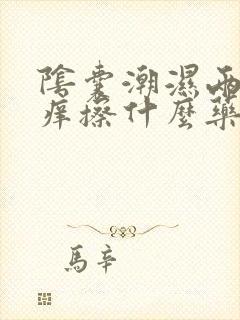 陰囊潮濕兩
痒擦什麼藥
馬辛